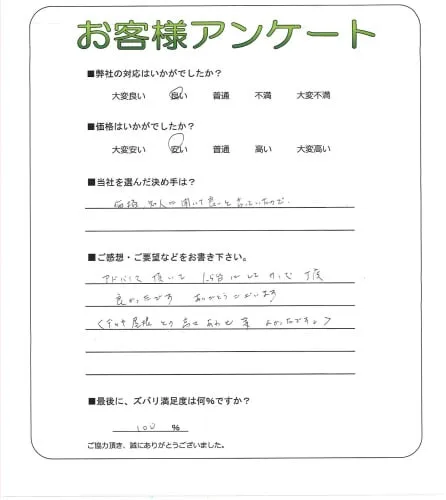 お客様アンケート
■弊社の対応はいかがでしたか？
大変良い 良い 普通 不満 大変不満
■価格はいかがでしたか？
大変安い 安い 普通 高い 大変高い
■当社を選んだ決め手は？
価格 知人に聞いて良いと言っていたので。
■ご感想・ご要望などをお書き下さい。
アドバイス頂いて 1.5台にして
良かったです ありがとうございます
屋根 高さ あわせ よかったですよ＞
■最後に、ズバリ満足度は何%ですか？
100 %
ご協力頂き、誠にありがとうございました。